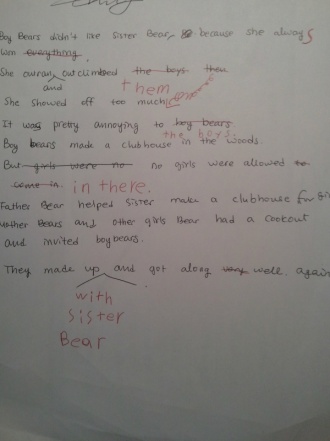 Boy Bears didn't like Sister Bear, because she always
won everything.
She outran outclimbed the boys then
and
them
She showed off too much
It was pretty annoying to boy bears
the boys.
Boy bears made a clubhouse in the woods.
But girls were no no girls were allowed to
come in. in there.
Father Bear helped sister make a clubhouse for
Bears and other girls Bear had a cookout
and invited boy bears.
They made up and got along very well. again
with
sister
Bear